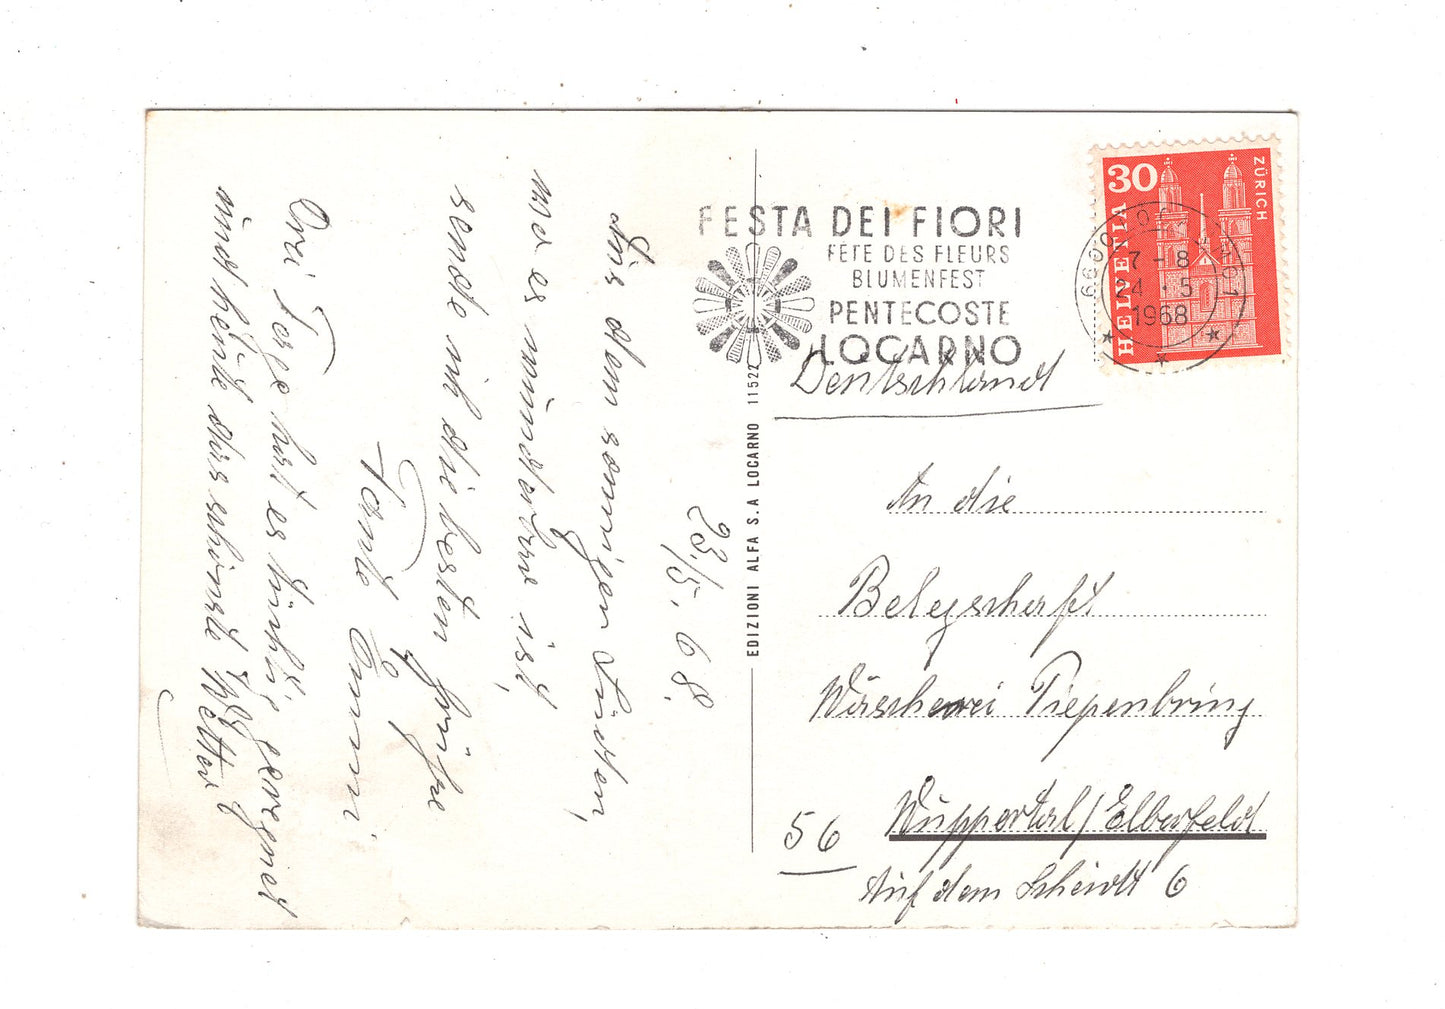 23/5. 68.
Aus dem sonnigen Süden,
wo es wunderbar ist,
sende ich die besten Grüße
Tante Emmi
Drei Tage hat es tüchtig geregnet
und heute das schönste Wetter
FESTA DEI FIORI
FÊTE DES FLEURS
BLUMENFEST
PENTECOSTE
LOCARNO
30
HELVETIA
ZÜRICH
6600
7-8
24.5
1968
Deutschland
EDIZIONI ALFA S.A LOCARNO 11522
An die
Belegschaft
Wäscherei Tiepenbring
56 Wuppertal/Elberfeld
Auf dem Scheidt 6